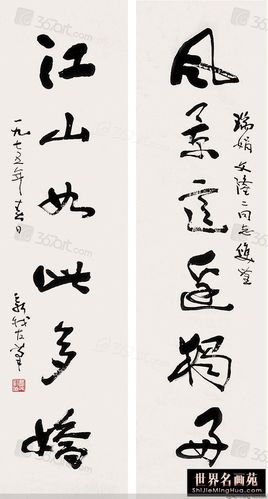 瑞娟文隆二同志
风景這邊獨好
江山如此多嬌
一九七五年春日
新我左筆
367art.com
世界名画苑
ShiJieMingHua.Com